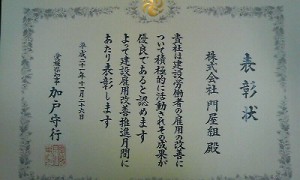 表彰状
株式会社 門屋組 殿
貴社は建設労働者の雇用の改善に
ついて積極的に活動されその成果が
優良であると認めます
よって建設雇用改善推進月間に
あたり表彰します
平成二十二年十一月二十六日
愛媛県知事 加戸守行